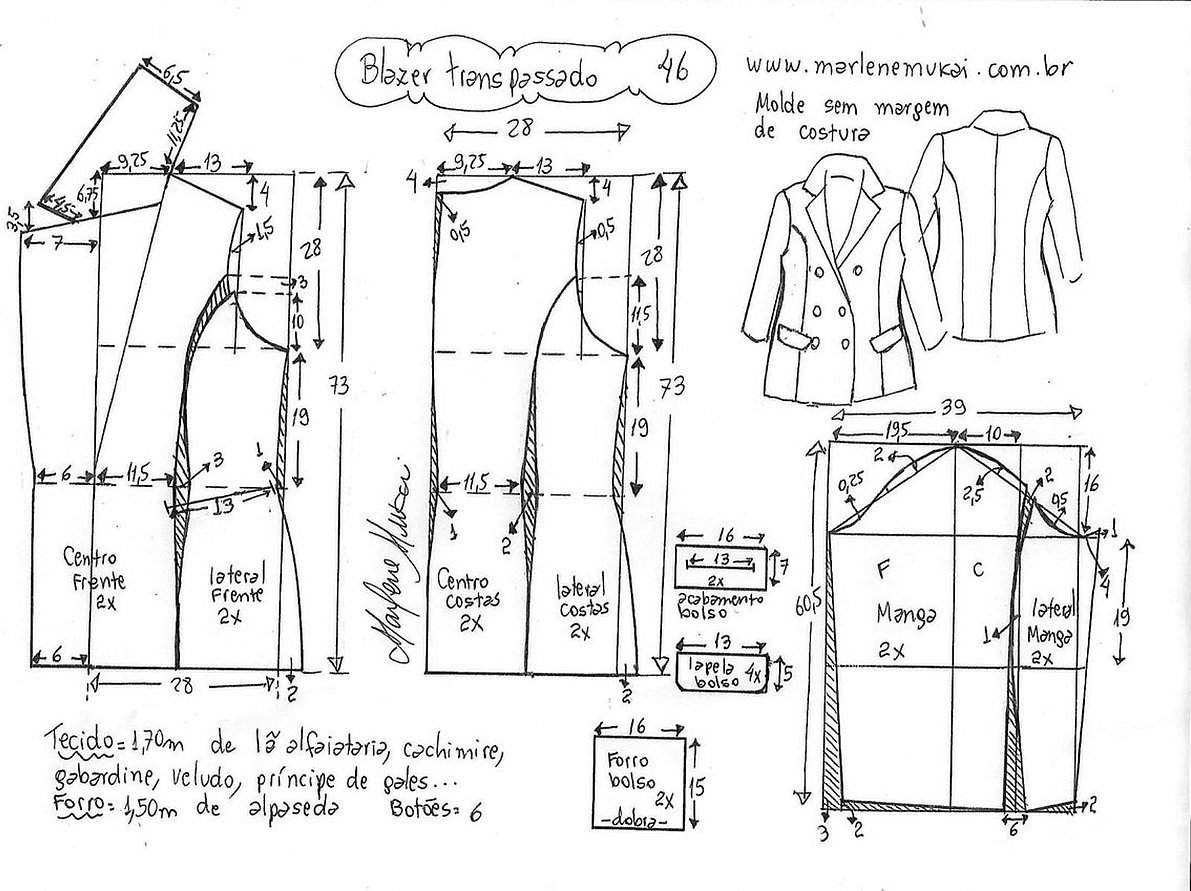 Blazer transpassado 46
www.marlenemukai.com.br
Molde sem margem
de costura
6,5
11,25
9,25
13
6,75
4,5
3,5
7
4
1,5
28
3
10
73
19
6
11,5
3
1
13
Centro
Frente
2x
lateral
Frente
2x
6
28
2
28
9,25
13
4
4
0,5
0,5
28
11,5
73
19
11,5
1
2
Centro
Costas
2x
lateral
Costas
2x
2
Marlene Mukai
16
13
2x
7
acabamento
bolso
13
lapela
bolso
4x
5
16
Forro
bolso
2x
-dobra-
15
39
19,5
10
2
0,25
2,5
2
0,5
16
1
4
60,5
F
C
Manga
2x
lateral
Manga
2x
1
19
3
2
6
2
Tecido= 1,70m de lã alfaiataria, cachimire,
gabardine, veludo, príncipe de gales...
Forro= 1,50m de alpaseda Botões= 6